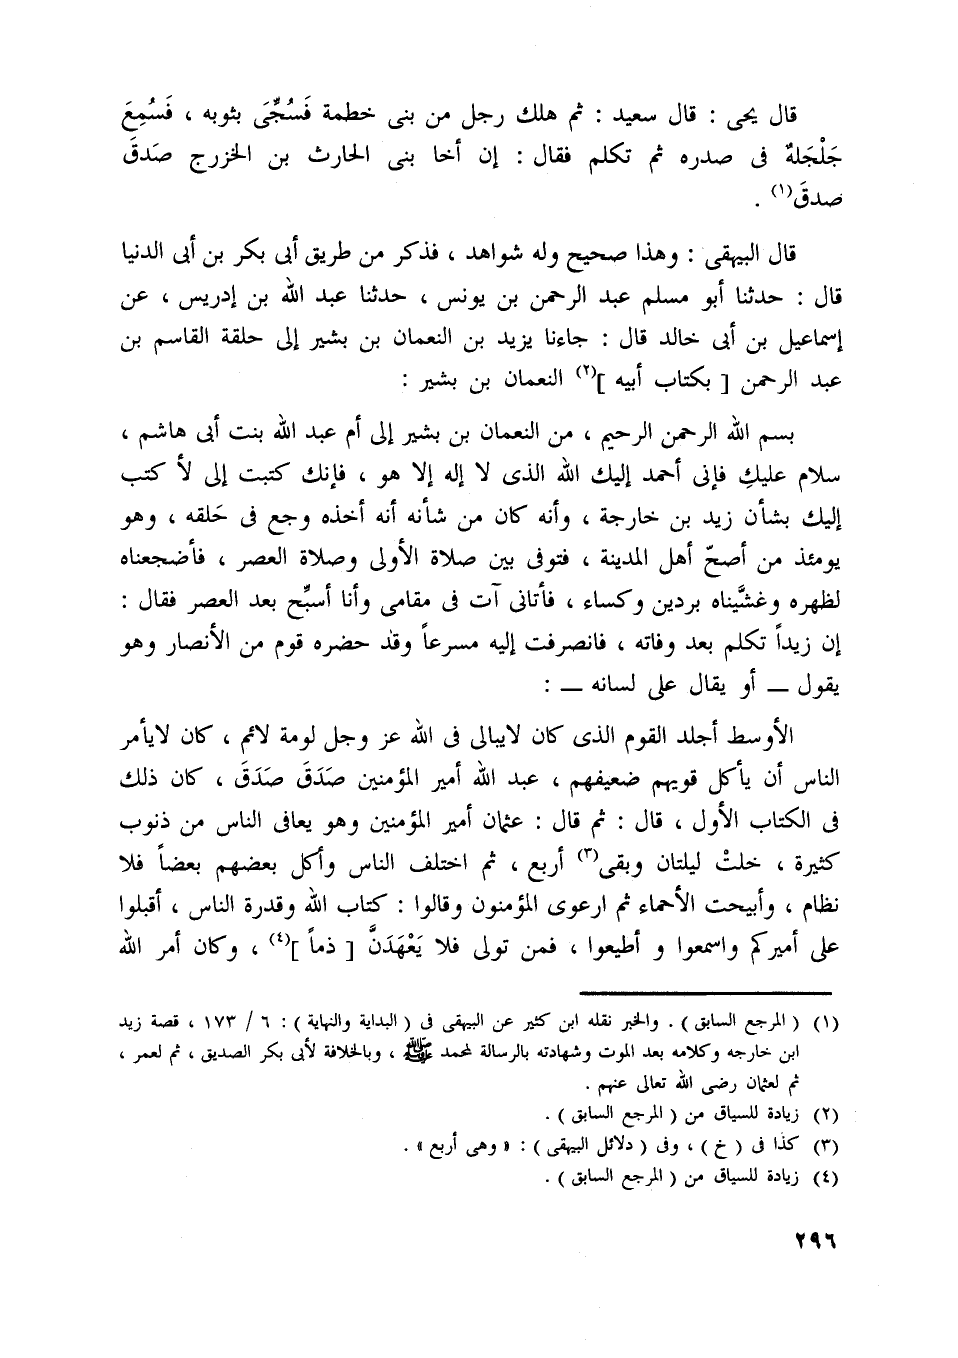 قال يحى : قال سعيد : ثم هلك رجل من بنى خطمة فَسُجِّىَ بثوبه ، فَسُمِعَ
جَلْجَلةٌ فى صدره ثم تكلم فقال : إن أخا بنى الحارث بن الخزرج صَدقَ
صدقَ(١) .
قال البيهقى : وهذا صحيح وله شواهد ، فذكر من طريق أبى بكر بن أبى الدنيا
قال : حدثنا أبو مسلم عبد الرحمن بن يونس ، حدثنا عبد الله بن إدريس ، عن
إسماعيل بن أبى خالد قال : جاءنا يزيد بن النعمان بن بشير إلى حلقة القاسم بن
عبد الرحمن [ بكتاب أبيه ](٢) النعمان بن بشير :
بسم الله الرحمن الرحيم ، من النعمان بن بشير إلى أم عبد الله بنت أبى هاشم ،
سلام عليكِ فإنى أحمد إليك الله الذى لا إله إلا هو ، فإنك كتبت إلى لأ كتب
إليك بشأن زيد بن خارجة ، وأنه كان من شأنه أنه أخذه وجع فى حَلقه ، وهو
يومئذ من أصحّ أهل المدينة ، فتوفى بين صلاة الأولى وصلاة العصر ، فأضجعناه
لظهره وغشَّيناه بردين وكساء ، فأتانى آت فى مقامى وأنا أسبِّح بعد العصر فقال :
إن زيداً تكلم بعد وفاته ، فانصرفت إليه مسرعاً وقد حضره قوم من الأنصار وهو
يقول ــ أو يقال على لسانه ــ :
الأوسط أجلد القوم الذى كان لايبالى فى الله عز وجل لومة لائم ، كان لايأمر
الناس أن يأكل قويهم ضعيفهم ، عبد الله أمير المؤمنين صَدَقَ صَدَقَ ، كان ذلك
فى الكتاب الأول ، قال : ثم قال : عثمان أمير المؤمنين وهو يعافى الناس من ذنوب
كثيرة ، خلتْ ليلتان وبقى(٣) أربع ، ثم اختلف الناس وأكل بعضهم بعضاً فلا
نظام ، وأبيحت الأحماء ثم ارعوى المؤمنون وقالوا : كتاب الله وقدرة الناس ، أقبلوا
على أميركم واسمعوا و أطيعوا ، فمن تولى فلا يَعْهَدَنَّ [ ذماً ](٤) ، وكان أمر الله
(١) ( المرجع السابق ) . والخبر نقله ابن كثير عن البيهقى فى ( البداية والنهاية ) : ٦ / ١٧٣ ، قصة زيد
ابن خارجه وكلامه بعد الموت وشهادته بالرسالة لمحمد ﷺ ، وبالخلافة لأبى بكر الصديق ، ثم لعمر ،
ثم لعثمان رضى الله تعالى عنهم .
(٢) زيادة للسياق من ( المرجع السابق ) .
(٣) كذا فى ( خ ) ، وفى ( دلائل البيهقى ) : « وهى أربع » .
(٤) زيادة للسياق من ( المرجع السابق ) .
٢٩٦